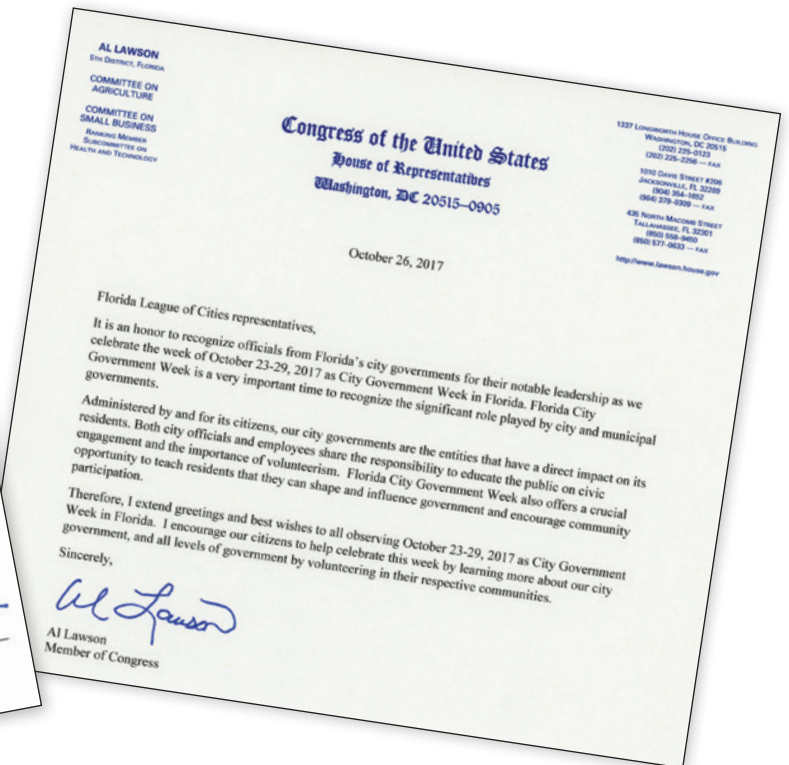 AL LAWSON
5TH DISTRICT, FLORIDA
COMMITTEE ON
AGRICULTURE
COMMITTEE ON
SMALL BUSINESS
RANKING MEMBER
SUBCOMMITTEE ON
HEALTH AND TECHNOLOGY
Congress of the United States
House of Representatives
Washington, DC 20515–0905
1337 LONGWORTH HOUSE OFFICE BUILDING
WASHINGTON, DC 20515
(202) 225–0123
(202) 225–2256 — FAX
1010 DAVIS STREET #206
JACKSONVILLE, FL 32209
(904) 354–1652
(904) 379–0309 — FAX
435 NORTH MACOMB STREET
TALLAHASSEE, FL 32301
(850) 558–9450
(850) 577–0633 — FAX
http://www.lawson.house.gov
October 26, 2017
Florida League of Cities representatives,
It is an honor to recognize officials from Florida's city governments for their notable leadership as we
celebrate the week of October 23-29, 2017 as City Government Week in Florida. Florida City
Government Week is a very important time to recognize the significant role played by city and municipal
governments.
Administered by and for its citizens, our city governments are the entities that have a direct impact on its
residents. Both city officials and employees share the responsibility to educate the public on civic
engagement and the importance of volunteerism. Florida City Government Week also offers a crucial
opportunity to teach residents that they can shape and influence government and encourage community
participation.
Therefore, I extend greetings and best wishes to all observing October 23-29, 2017 as City Government
Week in Florida. I encourage our citizens to help celebrate this week by learning more about our city
government, and all levels of government by volunteering in their respective communities.
Sincerely,
Al Lawson
Al Lawson
Member of Congress